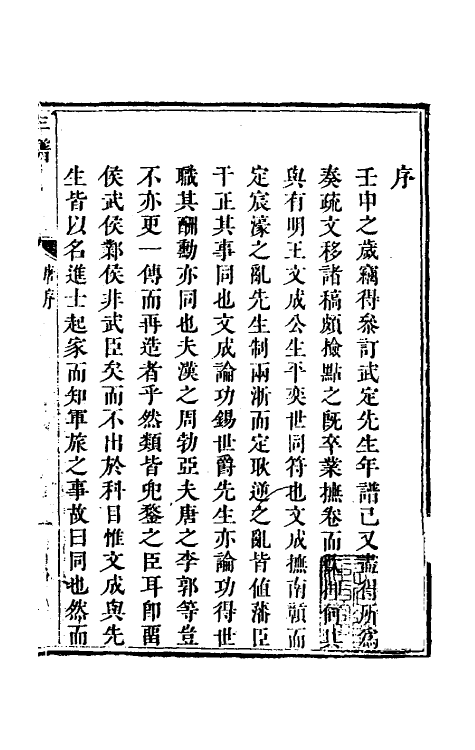 序
壬申之歲竊得參訂武定先生年譜已又盡得所為
奏疏文移諸稿頗撿點之既卒業撫卷而曰何其
與有明王文成公生平奕世同符也文成撫南贛而
定宸濠之亂先生制兩浙而定耿逆之亂皆值藩臣
干正其事同也文成論功錫世爵先生亦論功得世
職其酬勳亦同也夫漢之周勃亞夫唐之李郭等豈
不亦更一傳而再造者乎然類皆兜鍪之臣耳卽留
侯武侯鄴侯非武臣矣而不出於科目惟文成與先
生皆以名進士起家而知軍旅之事故曰同也然而
譜
序